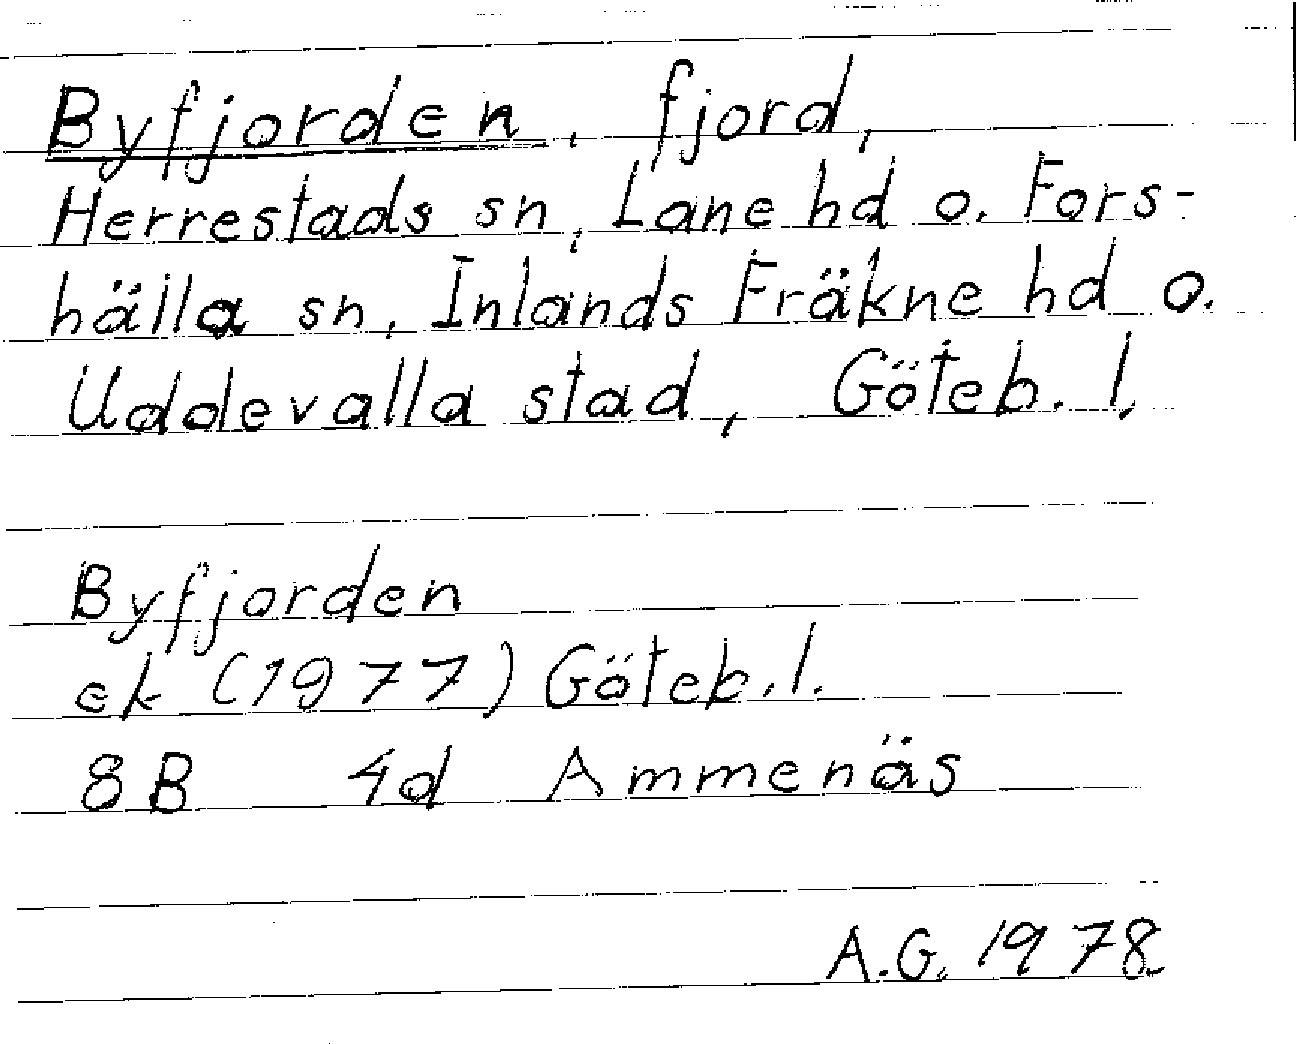 Byfjorden, fjord,
Herrestads sn, Lane hd o. Fors-
hälla sn, Inlands Fräkne hd o.
Uddevalla stad, Göteb. l.
Byfjorden
ek (1977) Göteb. l.
8B 4d Ammenäs
A.G. 1978